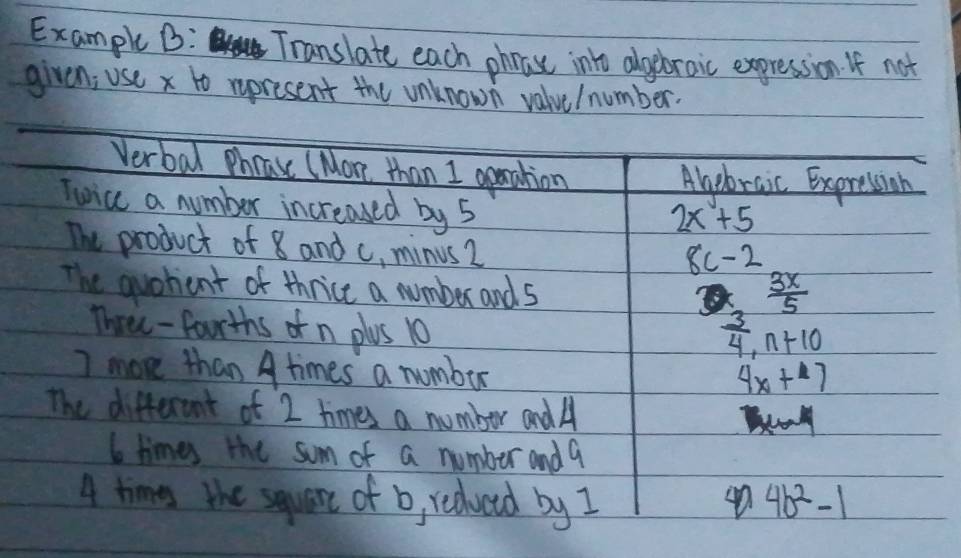 Example B: Translate each phrase into algebraic expression. If not
given; use x to represent the unknown value/number.
Verbal Phrase (More than 1 operation Algebraic Expression
Twice a number increased by 5 2x+5
The product of 8 and c, minus 2 8c-2
The quotient of thrice a number and 5 3x/5
Three-fourths of n plus 10 3/4, n+10
7 more than 4 times a number 4x+7
The different of 2 times a number and 4
6 times the sum of a number and 9
4 times the square of b, reduced by 1 4b²-1